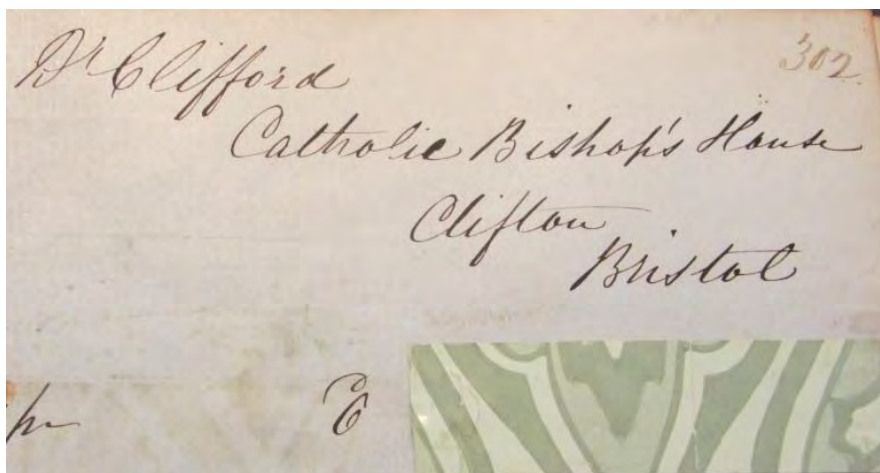 302
Dr Clifford
Catholic Bishop's House
Clifton
Bristol